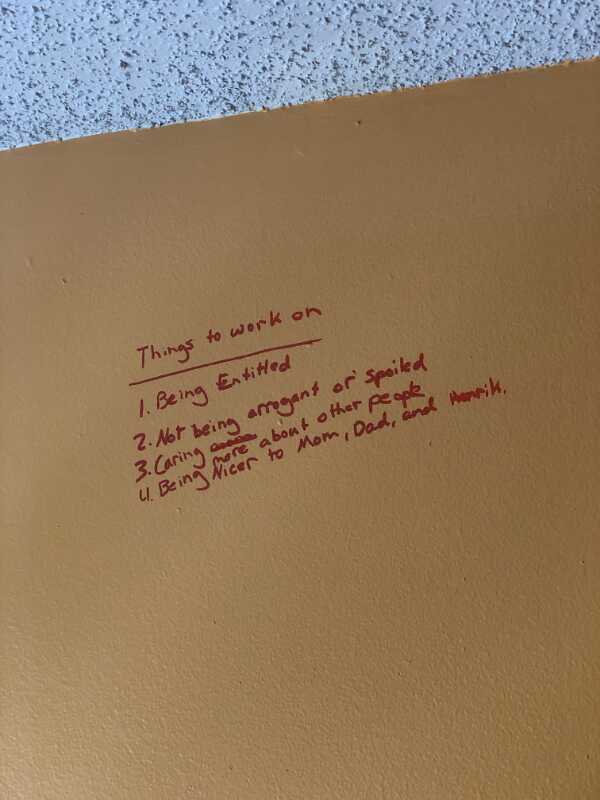 Things to work on
1. Being Entitled
2. Not being arrogant or spoiled
3. Caring more about other people
4. Being Nicer to Mom, Dad, and Henrik.